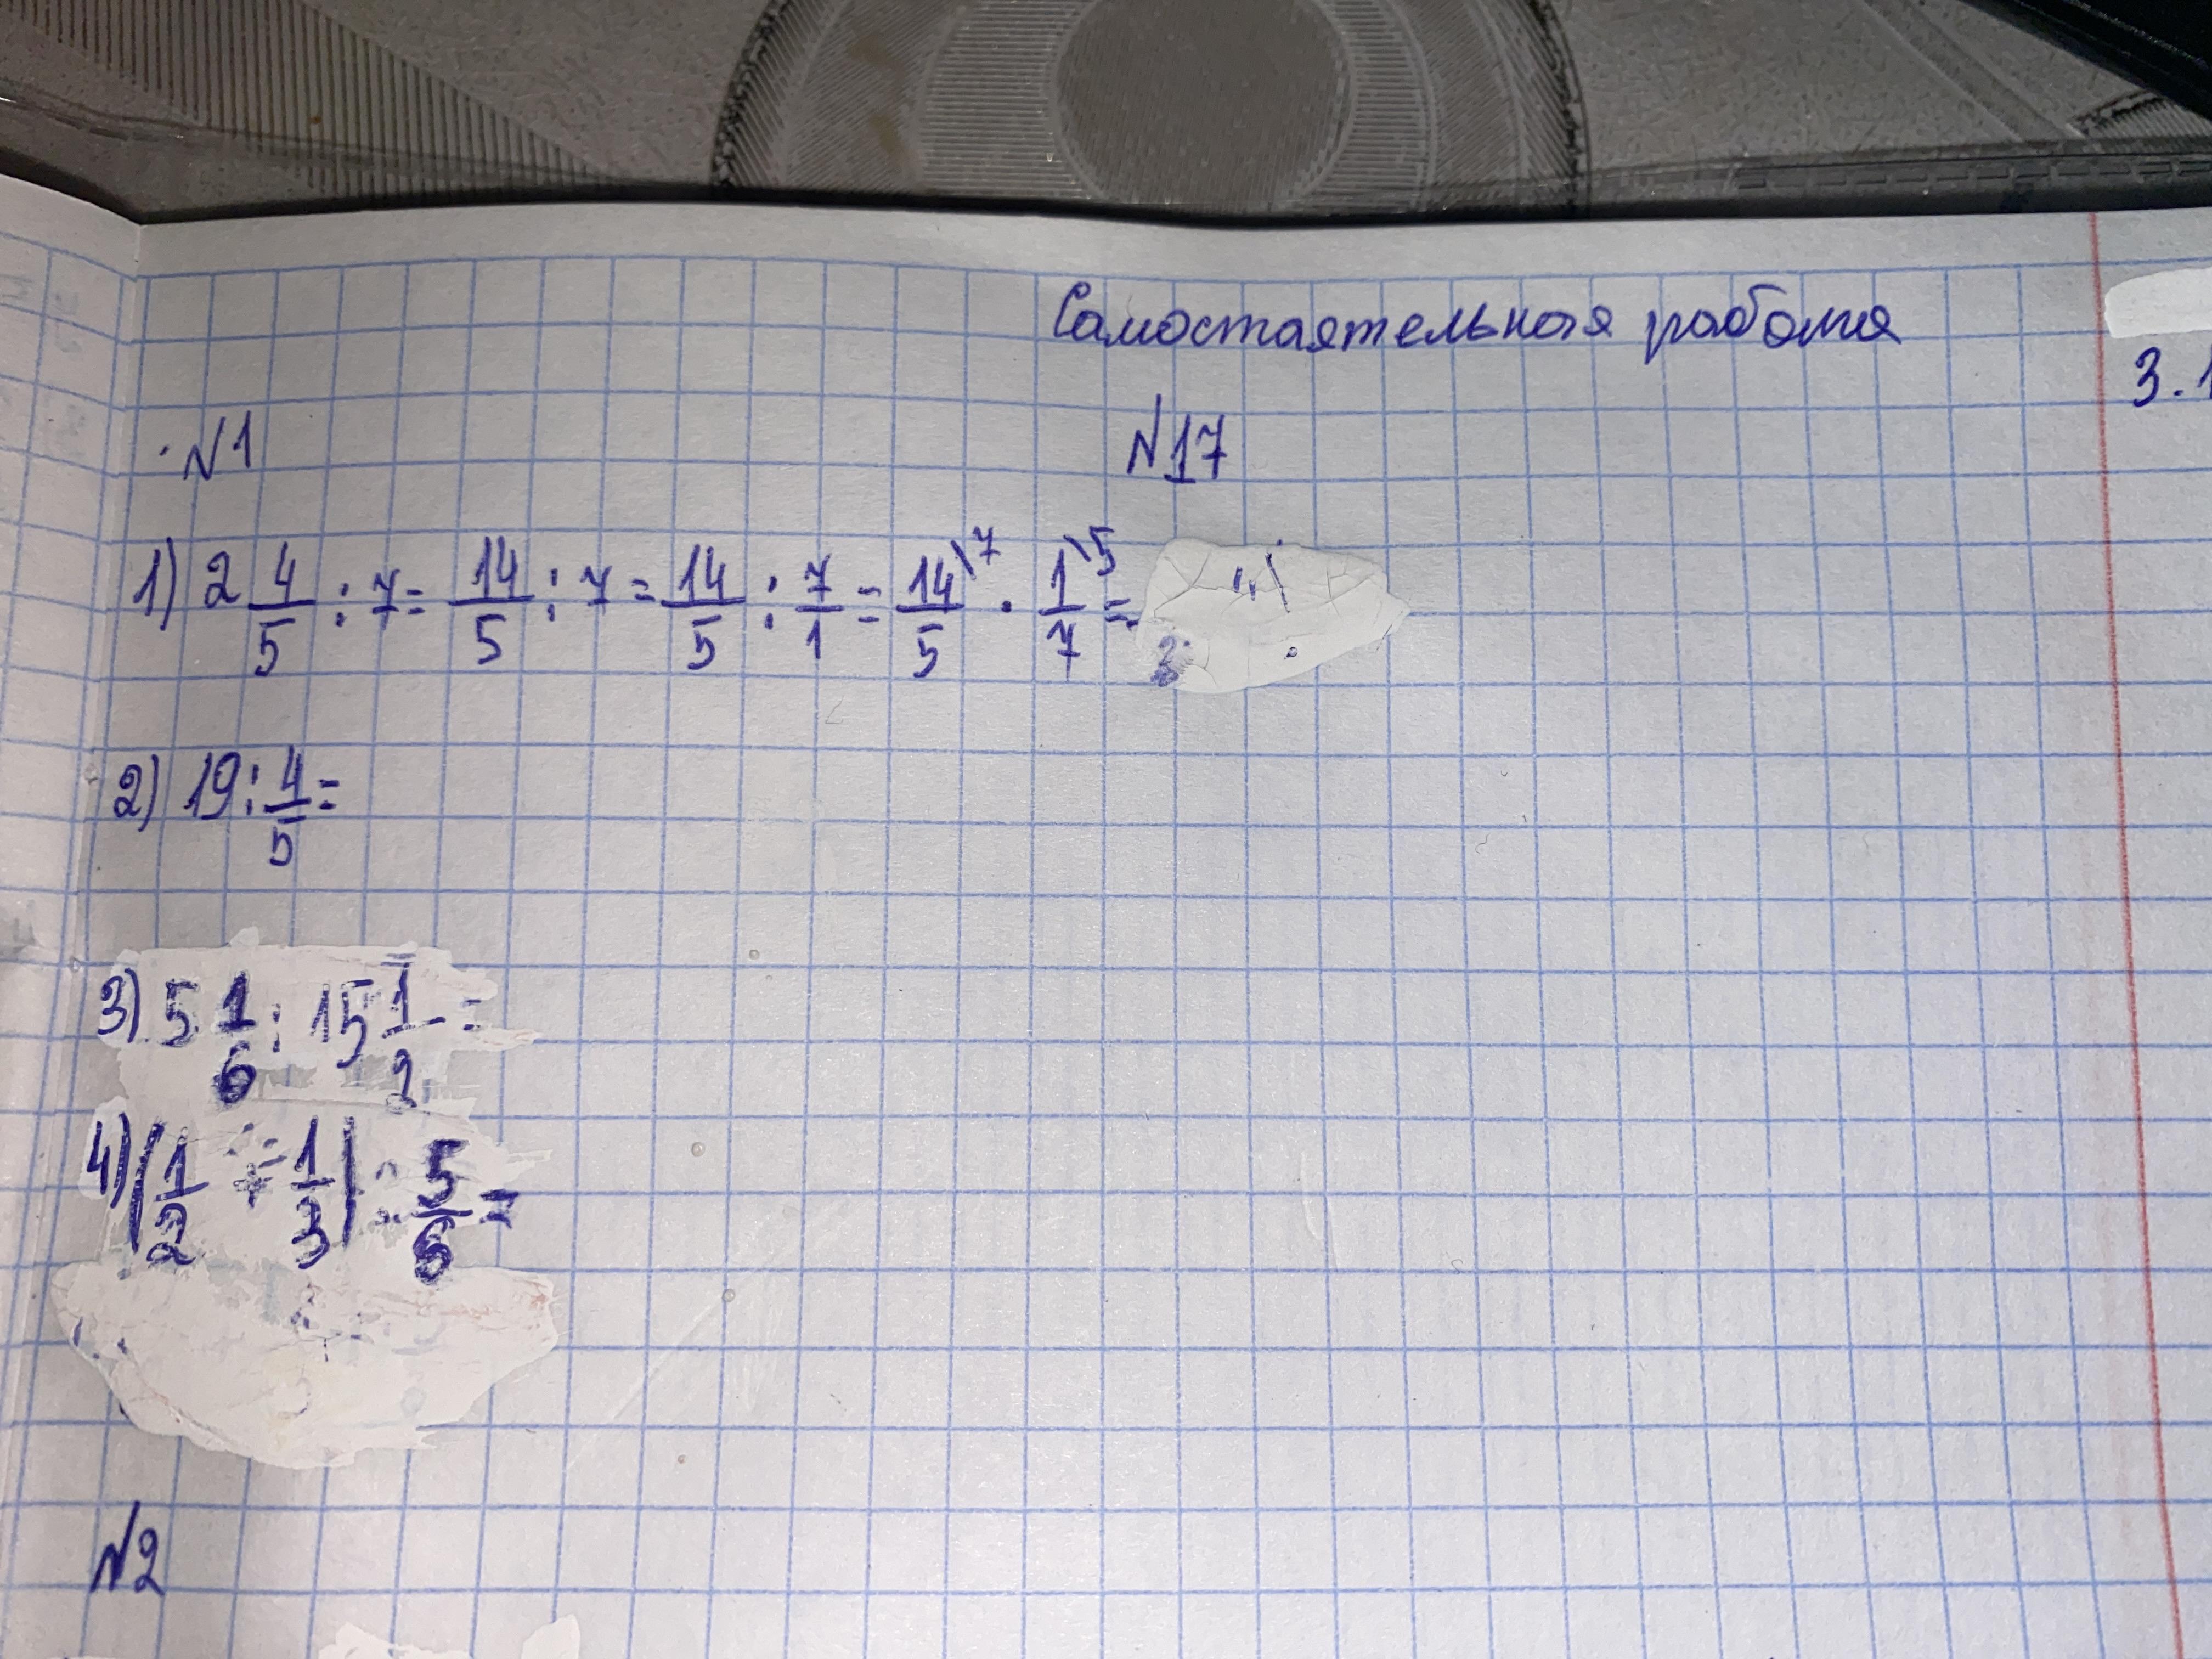 Самостаятельная работа
3.1
№1 №17
1) 2 4/5 : 7 = 14/5 : 7 = 14/5 : 7/1 = 14\7/5 · 1\5/7 =
2) 19 : 4/5 =
3) 5 1/6 : 15 1/2 =
4) (1/2 + 1/3) : 5/6 =
№2